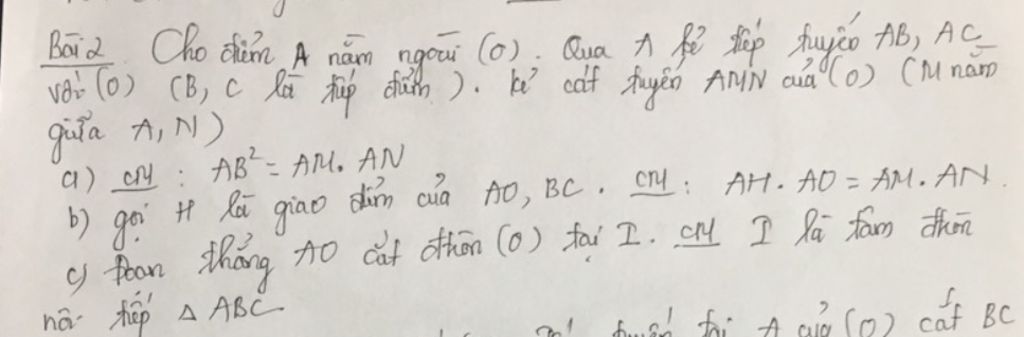 Bài 2 Cho điểm A nằm ngoài (O). Qua A kẻ tiếp tuyến AB, AC
với (O) (B, C là tiếp điểm). kẻ cát tuyến AMN của (O) (M nằm
giữa A, N)
a) CM : AB² = AM. AN
b) gọi H là giao điểm của AO, BC. CM: AH. AO = AM. AN.
c) Đoạn thẳng AO cắt đtròn (O) tại I. CM I là tâm đtròn
nội tiếp △ ABC
tại A của (O) cắt BC